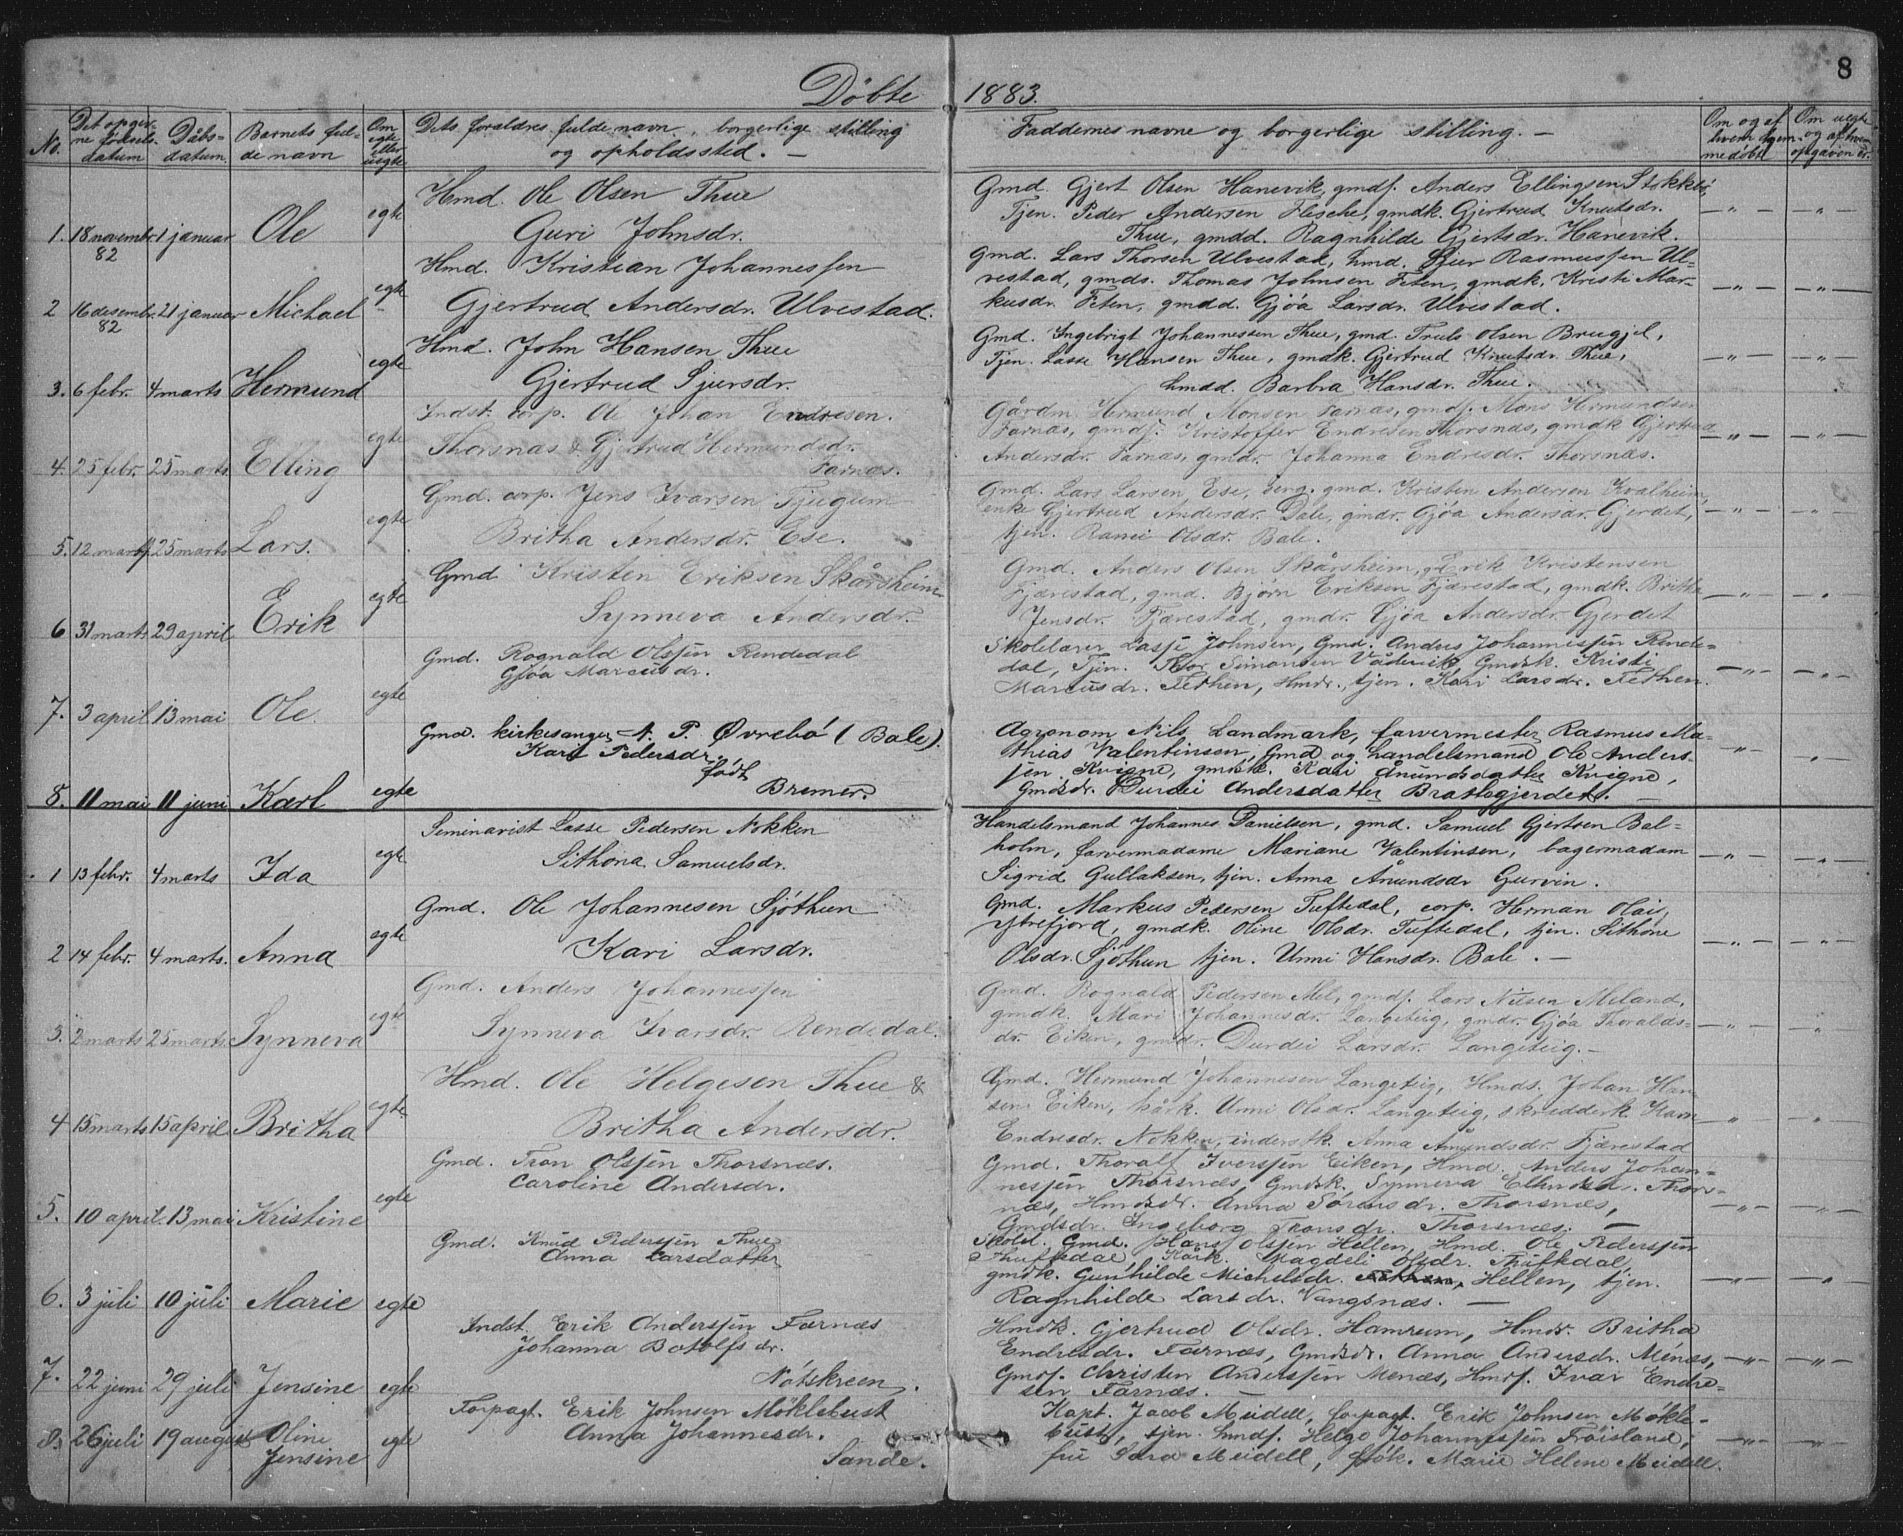 Döbte 1883.
8
No. Det opgivne födselsdatum Dåbsdatum. Barnets fulde navn Om egte eller uegte Dets foraldres fulde navn, borgerlige stilling og opholdssted. — Faddernes navne og borgerlige stilling. — Om og af hvem hjemmedöbt Om uegte og af hvem opgaven er.
1. 18 novembr. 82 1 januar Ole egte
Hmd. Ole Olsen Thue
Guri Johnsdr.
Gmd. Gjert Olsen Hanevik, gmdf. Anders Ellingsen Stokkebö,
Tjen. Peder Andersen Flesche, gmdk. Gjertrud Knutsdr.
Thue, gmdd. Ragnhilde Gjertsdr. Hanevik.
2 16 desembr. 82 21 januar Michael egte
Hmd. Kristian Johannessen
Gjertrud Andersdr. Ulvestad.
Gmd. Lars Thorsen Ulvestad, hmd. Sjur Rasmussen Ul-
vestad, gmds. Thomas Johnsen Feten, gmdk. Kristi Mar-
kusdr. Feten, gmdd. Gjöa Larsdr. Ulvestad.
3. 6 febr. 4 marts Hermund egte
Hmd. John Hansen Thue
Gjertrud Sjursdr.
Gmd. Ingebrigt Johannessen Thue, gmd. Truls Olsen Brugjel,
Tjen. Lasse Hansen Thue, gmdk. Gjertrud Knutsdr. Thue,
hmdd. Barbra Hansdr. Thue.
4. 25 febr. 25 marts Elling egte
Indst. corp. Ole Johan Endresen.
Thorsnæs & Gjertrud Hermundsdr.
Farnæs.
Gårdm. Hermund Monsen Farnæs, gmdf. Mons Hermundsen
Farnæs, gmdf. Kristoffer Endresen Thorsnæs, gmdk Gjertrud
Andersdr. Farnæs, gmdr. Johanna Endresdr. Thorsnæs.
5. 12 marts 25 marts Lars. egte
Gmd. corp. Jens Ivarsen Tjugum
Britha Andersdr. Ese.
Gmd. Lars Larsen Ese, serg. gmd. Kristen Andersen Kvalheim,
enke Gjertrud Andersdr. Dale, gmdr. Gjöa Andersdr. Gjerdet,
tjen. Olsdr. Bale.
6 31 marts 29 april Erik egte
Gmd Kristen Eriksen Skårsheim
Synneva Andersdr.
Gmd. Anders Olsen Skårsheim, Erik Kristensen
Fjærestad, gmd. Björn Eriksen Fjærestad, gmdk. Britha
Jensdr. Fjærestad, gmdr. Gjöa Andersdr. Gjerdet
7. 3 april 13 mai Ole. egte
Gmd. Rognald Olsjen Rendedal
Gjöa Marcusdr.
Skolelarer Lasje Johnsen, Gmd. Anders Johannesjen Rende-
dal, Tjen. Simonsen, Gmdsk. Kristi
Marcusdr. Fethen, Hmdr. tjen. Kari Larsdr. Fethen.
8. 11 mai 11 juni Karl egte
Gmd. kirkesanger N. P. Övrebö (Bale).
Kari Pedersdr.
födt
Bremer.
Agronom Nils Landmark, farvermester Rasmus Ma-
thias Valentinsen, Gmd og handelsmand Ole Anders-
sen Kvigne, gmdk. Kari Ånundsdatter Kvigne,
Gmdsdr. Durdei Andersdatter Brattegjerdet. —
1 13 febr. 4 marts Ida egte
Seminarist Lasse Pedersen Nökken
Sithona Samuelsdr.
Handelsmand Johannes Danielsen, gmd. Samuel Gjertsen Bal-
holm, farvermadame Mariane Valentinsen, bagermadam
Sigrid Gullaksen, tjen. Anna Ånundsdr Gurvin.
2 14 febr. 4 marts. Anna egte
Gmd. Ole Johannesen Sjöthun
Kari Larsdr.
Gmd. Markus Pedersen Tuftedal, corp. Herman Olais
Ytrefjord, gmdk. Oline Olsdr. Tuftedal, tjen. Sithöne
Olsdr. Sjöthun tjen. Unni Hansdr. Bale. —
3. 2 marts 25 marts Synneva egte
Gmd. Anders Johannesjen
Synneva Ivarsdr. Rendedal.
Gmd. Rognald Pedersen Mel, gmdf. Lars Nilsen Meland,
gmdk. Mari Johannesdr. Langeteig, gmdr. Gjöa Thoralds-
dr. Eiken, gmdr. Durdei Larsdr. Langeteig. —
4 15 marts 15 april Britha egte
Hmd. Ole Helgesen Thue &
Britha Andersdr.
Gmd. Hermund Johannesen Langeteig, Hmds. Johan Han-
sen Eiken, kårk. Unni Olsdr. Langeteig, skredderk Kari
Endresdr. Nökken, inderstk. Anna Åmundsdr. Fjærestad
5. 10 april. 13 mai Kristine egte
Gmd. Tron Olsjen Thorsnæs.
Caroline Andersdr.
Gmd. Thoralf Iversjen Eiken, Hmd. Anders Johan-
nesjen Thorsnæs, Gmdsk. Synneva Thors-
næs, Hmdsdr. Anna Sörensdr. Thorsnæs,
Gmdsdr. Ingeborg Tronsdr. Thorsnæs. —
6. 3 juli 10 juli Marie egte
Gmd. Knud Pedersjen Thue
Anna Larsdatter
Skolel. Gmd. Hans Olsjen Hellen, Hmd. Ole Pedersjen
Thuftedal, Kårk. Magdeli Olsdr. Thuftedal,
gmdk. Gunhilde Michelsdr. Hellen, tjen.
Ragnhilde Larsdr. Vangsnæs. —
7. 22 juni 29 juli Jensine egte
Indst. Erik Andersjen Farnæs
Johanna Botolfsdr.
Nötskreen.
Hmdk. Gjertrud Olsdr. Hamrum, Hmdr. Britha
Endresdr. Farnæs, Gmdsdr. Anna Andersdr. Menæs,
Gmdf. Christen Andersjen Menæs, Hmdf. Ivar Endre-
sen Farnæs. —
8. 26 juli 19 august Oline Jensine egte
Forpagt. Erik Johnsen Möklebust
Anna Johannesdr.
Sande.
Kapt. Jacob Meidell, forpagt. Erik Johnsen Mökle-
bust, tjen. hmdf. Helge Johannesjen Fröisland,
frue Sara Meidell, frök. Marie Helene Meidell.